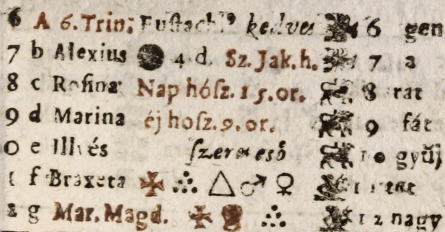 6 A 6. Trin: Eustach9 kedves 6 gen
7 b Alexius 4 d. Sz. Jak. h. 7 a
8 c Rosina Nap hósz. 15. or. 8 rat
9 d Marina éj hosz. 9. or. 9 fát
0 e Illyés szer esö 10 gyűj
1 f Braxeta △ ♂ ♀ 11
2 g Mar. Magd. 12 nagy